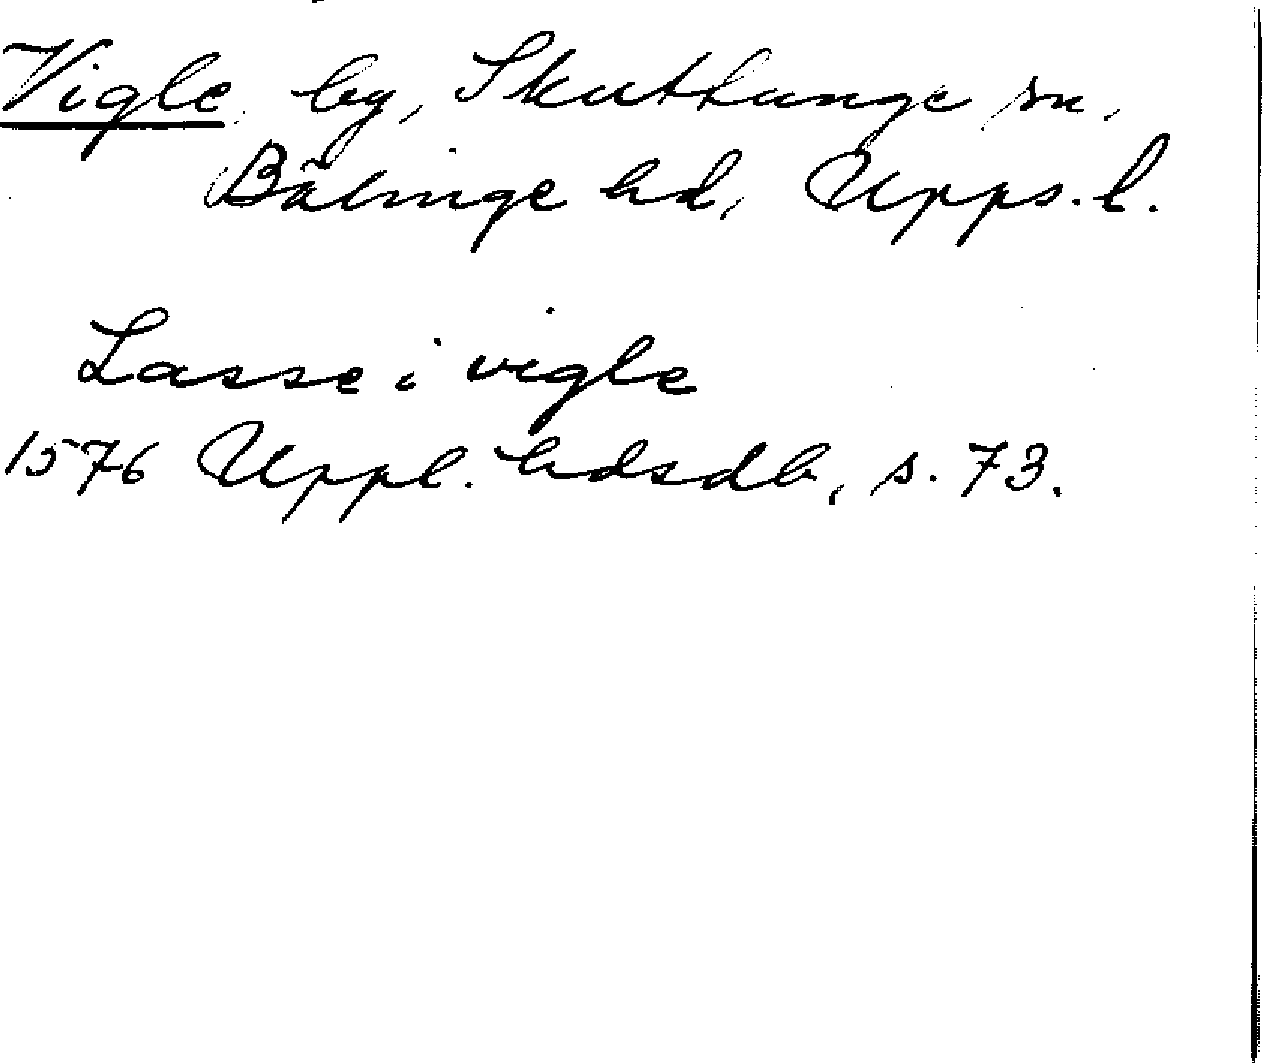 Vigle, by, Skuttunge sn,
Bälinge hd, Upps. l.
Lasse i vigle
1576 Uppl. hdsdb, s. 73.